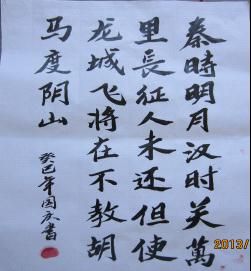 秦時明月汉时关萬
里長征人未还但使
龙城飞将在不教胡
马度阴山
癸巳年国庆書
2013/